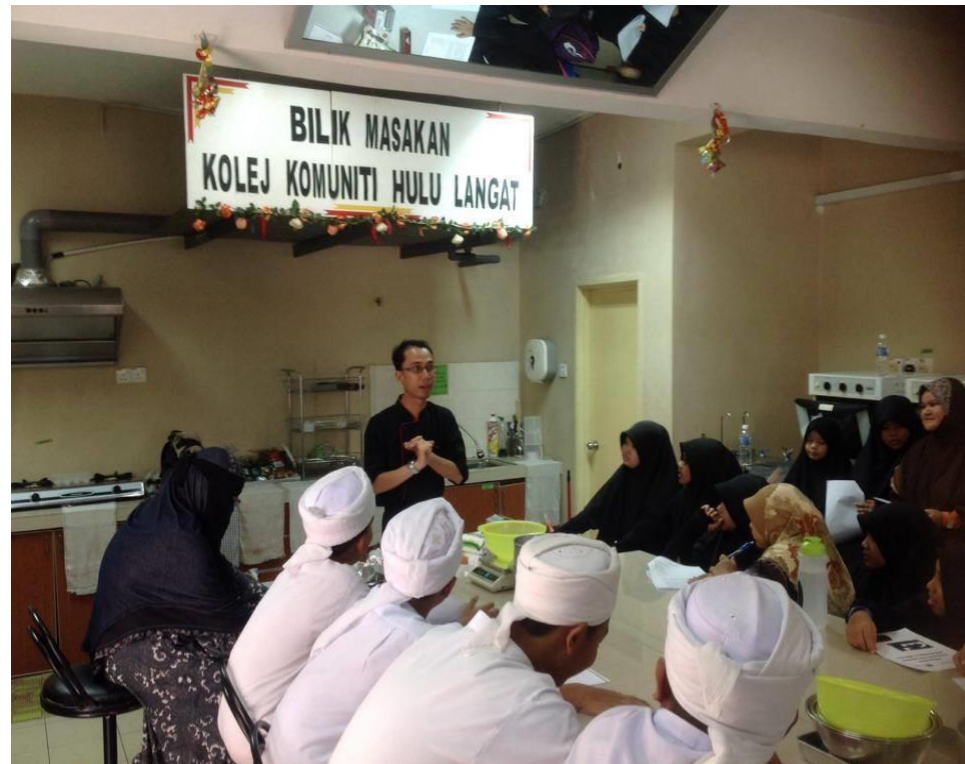 BILIK MASAKAN
KOLEJ KOMUNITI HULU LANGAT